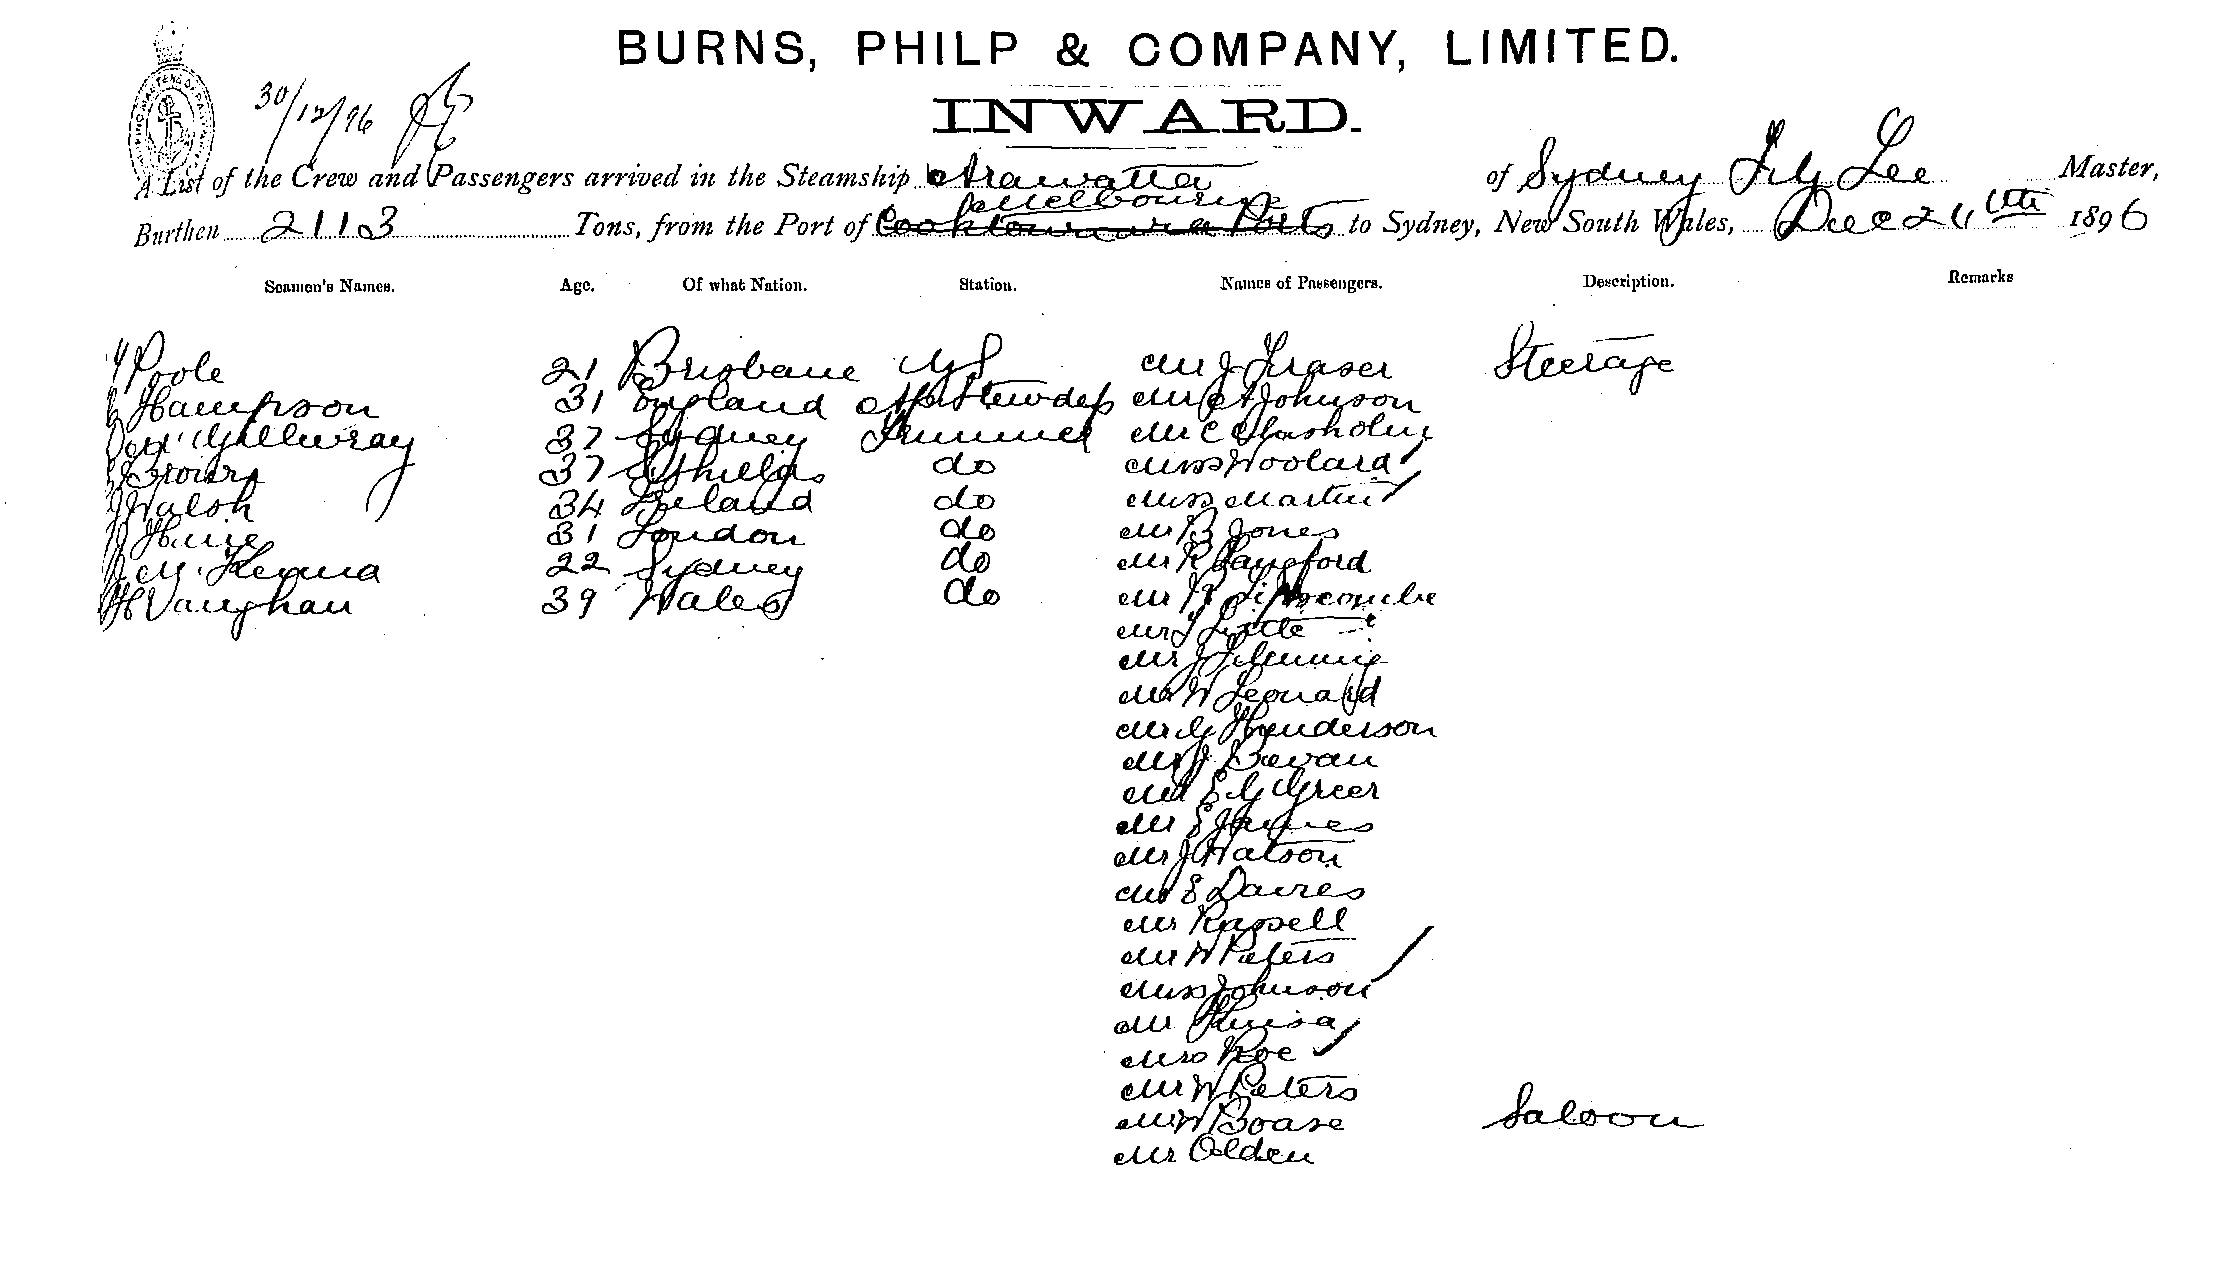 BURNS, PHILP & COMPANY, LIMITED.
30/12/96
INWARD.
A List of the Crew and Passengers arrived in the Steamship Arawatta of Sydney Lee Master,
Burthen 2113 Tons, from the Port of Melbourne to Sydney, New South Wales, Dec 1896
Seamen's Names. Age. Of what Nation. Station. Names of Passengers. Description. Remarks
Poole 21 Brisbane Mr J Fraser Steerage
Hampson 31 England Mr A Johnson
37 Sydney Trimmer Mr C
Brown 37 SShields do Miss Woolard
J Walsh 34 Ireland do Miss Martin
31 London do Mr B Jones
McKenna 22 Sydney do Mr R Langford
H Vaughan 39 Wales do Mr R Lipscombe
Mr
Mr J Fleming
Mr W Leonard
Mr G Henderson
Mr J Bevan
Mr E G Greer
Mr E James
Mr J Watson
Mr E Davies
Mr Russell
Mr W Peters
Miss Johnson
Mr
Mrs Roe
Mr W Peters
Mr W Boase Saloon
Mr Olden